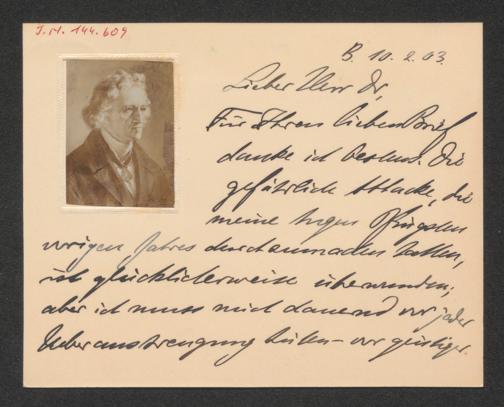 J.N. 144.609
B. 10. 2. 03.
Lieber Herr Dr,
Für Ihren lieben Brief
danke ich bestens. Die
gefährliche Attacke, die
meine Augen Pfingsten
vorigen Jahres durchzumachen hatten,
ist glücklicherweise überwunden;
aber ich muss mich dauernd vor jeder
Ueberanstrengung hüten – vor geistiger